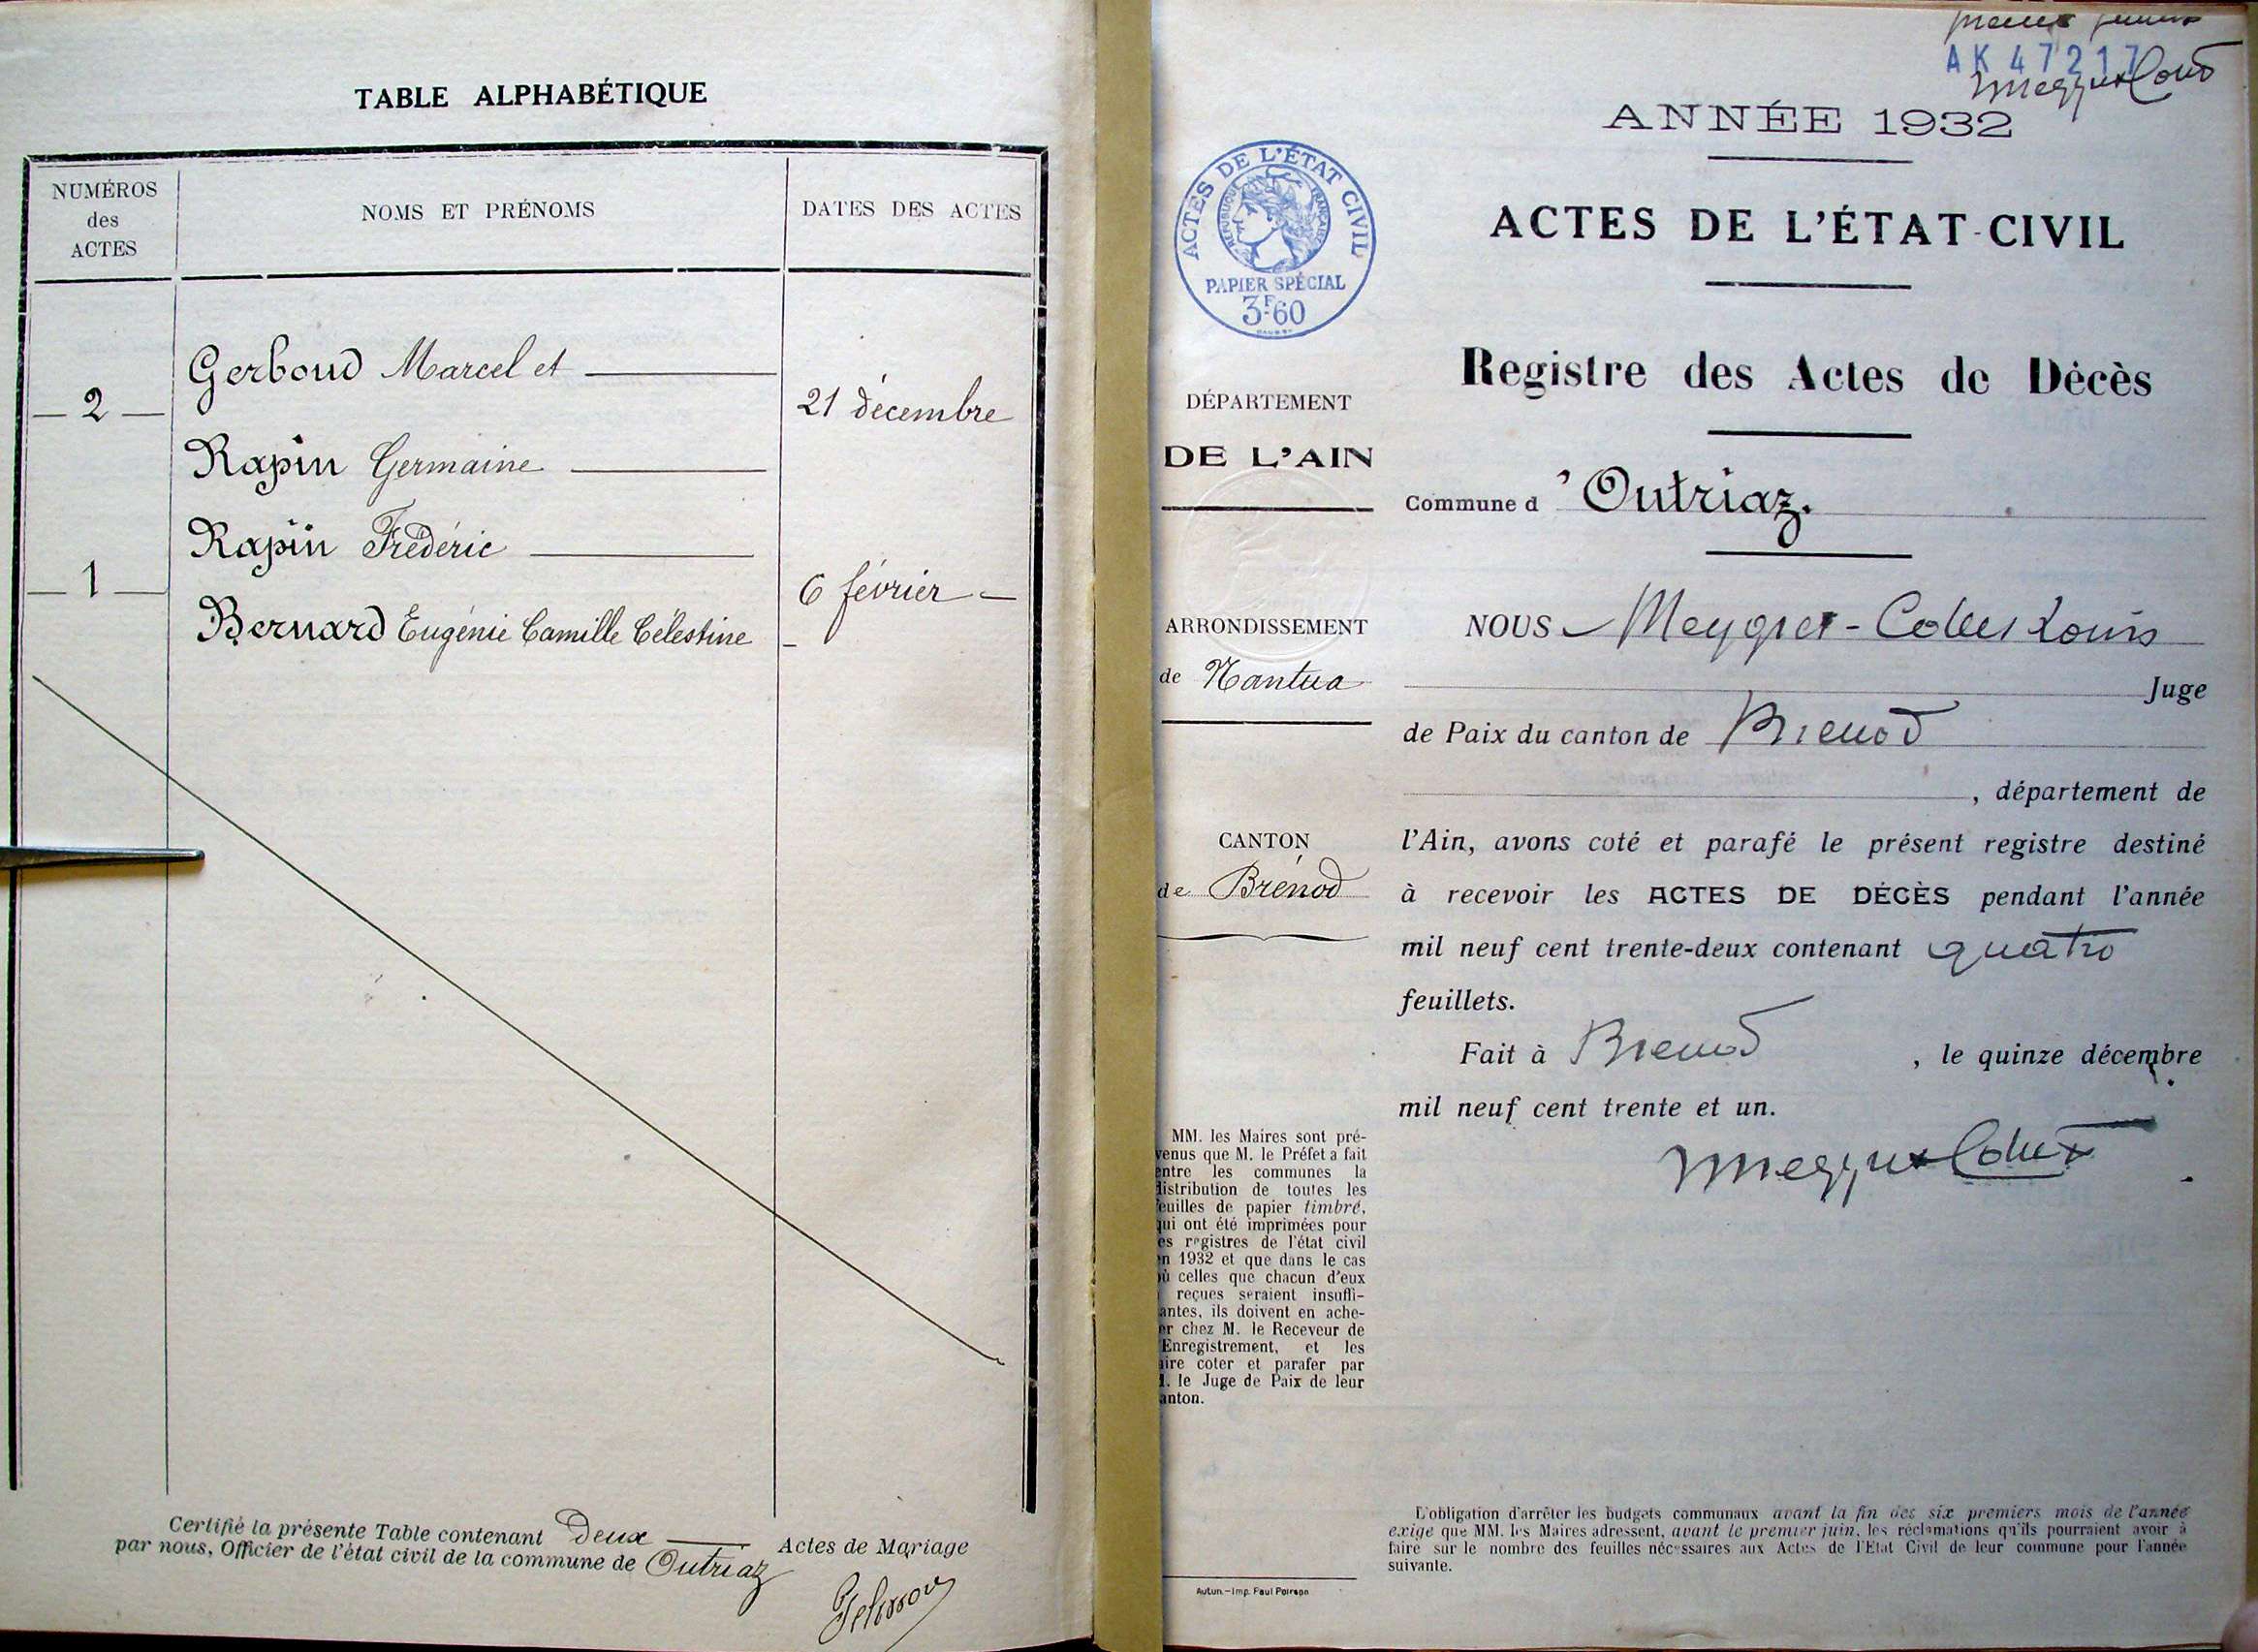 TABLE ALPHABÉTIQUE
NUMÉROS
des
ACTES
NOMS ET PRÉNOMS
DATES DES ACTES
Gerboud Marcel et
2
21 décembre
Rapin Germaine
Rapin Frédéric
1
6 février
Bernard Eugénie Camille Célestine
Certifié la présente Table contenant Deux Actes de Mariage
par nous, Officier de l'état civil de la commune de Outriaz
AK 47217
ACTES DE L'ÉTAT CIVIL
RÉPUBLIQUE FRANÇAISE
PAPIER SPÉCIAL
3F60
DÉPARTEMENT
DE L'AIN
ARRONDISSEMENT
de Nantua
CANTON
de Brénod
MM. les Maires sont pré-
venus que M. le Préfet a fait
entre les communes la
distribution de toutes les
feuilles de papier timbré,
qui ont été imprimées pour
es registres de l'état civil
en 1932 et que dans le cas
où celles que chacun d'eux
reçues seraient insuffi-
antes, ils doivent en ache-
er chez M. le Receveur de
Enregistrement, et les
aire coter et parafer par
M. le Juge de Paix de leur
anton.
Autun.-Imp. Paul Poirson
ANNÉE 1932
ACTES DE L'ÉTAT-CIVIL
Registre des Actes de Décès
Commune d'Outriaz.
NOUS Meygret-Collet Louis
Juge
de Paix du canton de Brenod
, département de
l'Ain, avons coté et parafé le présent registre destiné
à recevoir les ACTES DE DÉCÈS pendant l'année
mil neuf cent trente-deux contenant quatre
feuillets.
Fait à Brenod, le quinze décembre
mil neuf cent trente et un.
Meygret Collet
L'obligation d'arrêter les budgets communaux avant la fin des six premiers mois de l'année
exige que MM. les Maires adressent, avant le premier juin, les réclamations qu'ils pourraient avoir à
faire sur le nombre des feuilles nécessaires aux Actes de l'Etat Civil de leur commune pour l'année
suivante.